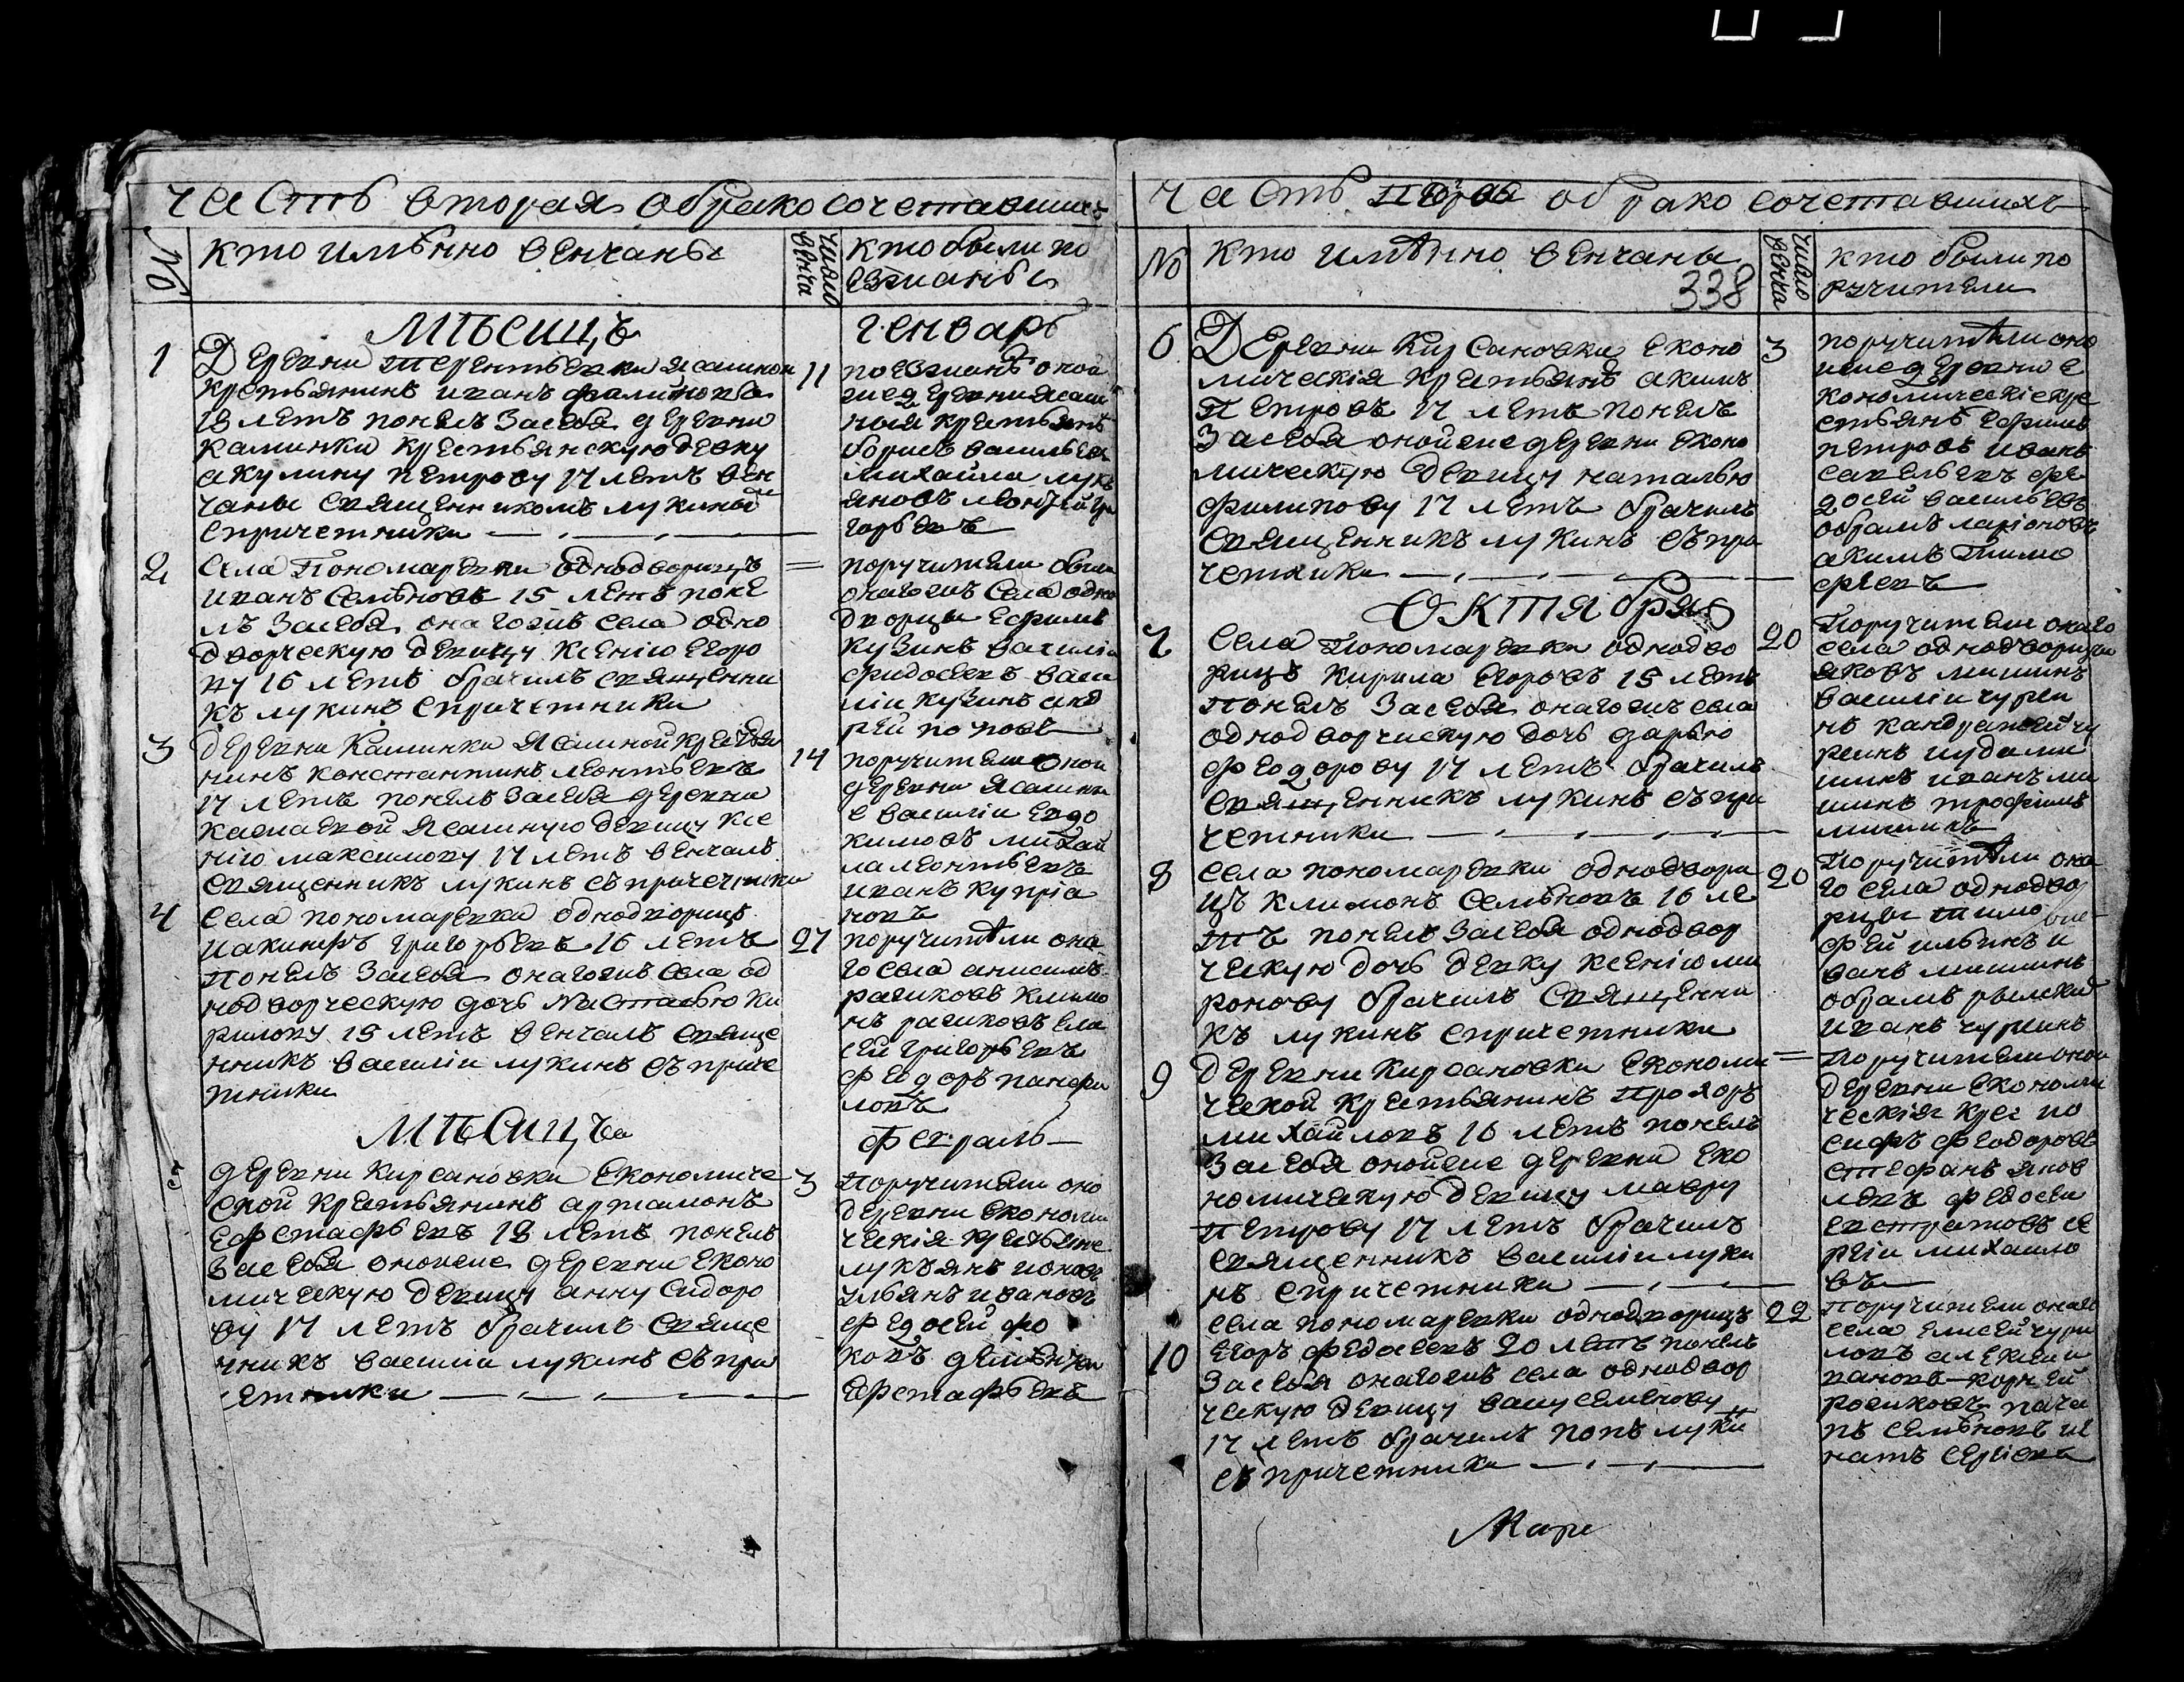 часть вторая обракосочетавшихъ
№
кто имѣнно венчаны
число венча
кто были по
езжаны
мѣсицъ
генварь
1
Деревни Терентьевки ясашнои
крстьянинъ иванъ филиповъ
18 летъ понелъ засебя деревни
каминки крестьянскую девку
акулину петрову 17 летъ вен
чаны священникомъ лукины
спричетники
11
поезжанѣ оной
же деревни ясаш
ныя крестьянѣ
борисъ васильевъ
михайла лукь
яновъ леонтей гри
горьевъ
2
села Пономаревки однодворицъ
иванъ семѣновъ 15 летъ поне
лъ засебя онагожъ села одно
дворческую девицу ксенію егоро
ву 16 летъ брачилъ священни
къ лукинъ спричетники
=
поручители были
онагожъ села одно
дворцы ефимъ
кузинъ василіи
фидосеевъ васи
ліи кузинъ анд
рей поповъ
3
деревни Каминки ясашной крестья
нинъ константинъ леонтьевъ
17 летъ понелъ засебя деревни
ясашную девицу ксе
нію максимову 17 летъ венчалъ
священникъ лукинъ съпричетники
14
поручители оной
деревни ясашны
е василіи евдо
кимовъ михаи
ла леонтьевъ
иванъ купріа
новъ
4
села пономаревки однодворицъ
иакинфъ григорьевъ 16 летъ
Понелъ засебя онагожъ села од
нодворческую дочь Настасью ки
рилову 15 летъ венчалъ свяще
нникъ василіи лукинъ съприче
тники
27
поручители она
го села анисимъ
рачиковъ климо
нъ рачиковъ ела
сей григорьевъ
феодоръ панфи
ловъ
мѣсицъ
февраль
5
деревни Кирсановки економиче
ской крестьянинъ артамонъ
ефстафьевъ 18 летъ понелъ
засебя онойже деревни еконо
мическую девицу анну сидоро
ву 17 летъ брачилъ свяще
нникъ василіи лукинъ съпри
четники
3
Поручители оно
деревни економи
ческія крестьяне
лукъянъ ионовъ
ульянъ ивановъ
федосей фо
ковъ
ефстафьевъ
часть обракосочетавшихъ
№
кто имѣнно венчаны
338
число венча
кто были по
ручители
6
Деревни Кирсановки еконо
мическія крестьянъ акимъ
Петровъ 17 летъ понелъ
Засебя онойже деревни еконо
мическую девицу наталью
филипову 17 летъ брачилъ
священникъ лукинъ съпри
четники
3
поручители оно
иже деревни е
кономическіе кре
стьянѣ ефимъ
петровъ иванъ
савельевъ фе
досей васильевъ
абрамъ ларіоновъ
акимъ тимо
феевъ
октября
7
села Пономаревки однодво
рицъ кирила егоровъ 15 летъ
Понелъ засебя онагожъ села
однодворчискую дочь дарью
феодорову 17 летъ брачилъ
священникъ лукинъ съпри
четники
20
Поручители онаго
села однодворцы
яковъ мишинъ
василіи чури
нъ кандратей чу
ринъ
шинъ иванъ ми
шинъ трофимъ
мишинъ
8
села пономаревки однодвори
цъ климонъ семѣновъ 16 ле
тъ понелъ засебя однодвор
ческую дочь девку ксенію ми
ронову брачилъ священни
къ лукинъ спричетники
20
Поручители она
го села однодво
рцы тимо
фей ильинъ и
ванъ мишинъ
абрамъ
иванъ чуринъ
9
деревни кирсановки економи
ческой крестьянинъ Прохоръ
михайловъ 16 летъ понелъ
засебя онойже деревни еко
номическую девицу мавру
петрову 17 летъ брачилъ
священникъ василіи луки
нъ спричетники
=
Поручители оной
деревни економи
ческія крес ио
сифъ феодоровъ
стефанъ яков
левъ федосеи
евстратовъ се
ргіи михаило
въ
10
села пономаревки однодворицъ
егоръ федосеевъ 20 летъ понелъ
засебя онагожъ села однодвор
ческую девицу васу семенову
17 летъ брачилъ попъ луки
съ причетники
22
Поручители онаго
села елисей чури
ловъ алексеи и
вановъ корней
рачиковъ
семѣновъ иг
натъ сергіевъ